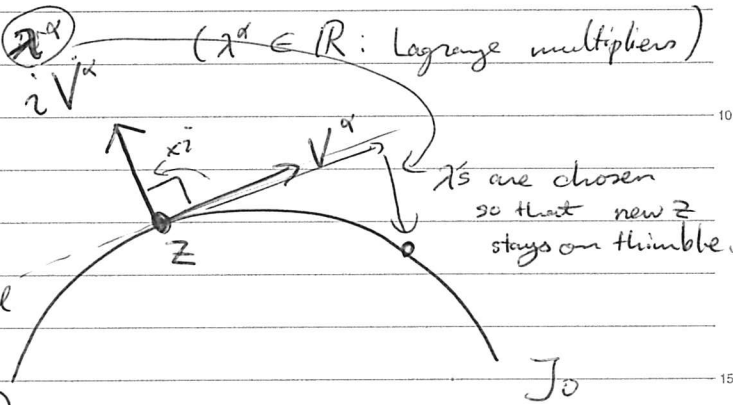 λ^α (λ^α ∈ ℝ : Lagrange multipliers)
i V^α
10
×i
V^α
λ's are chosen
so that new z
stays on thimble.
z
J_0
15